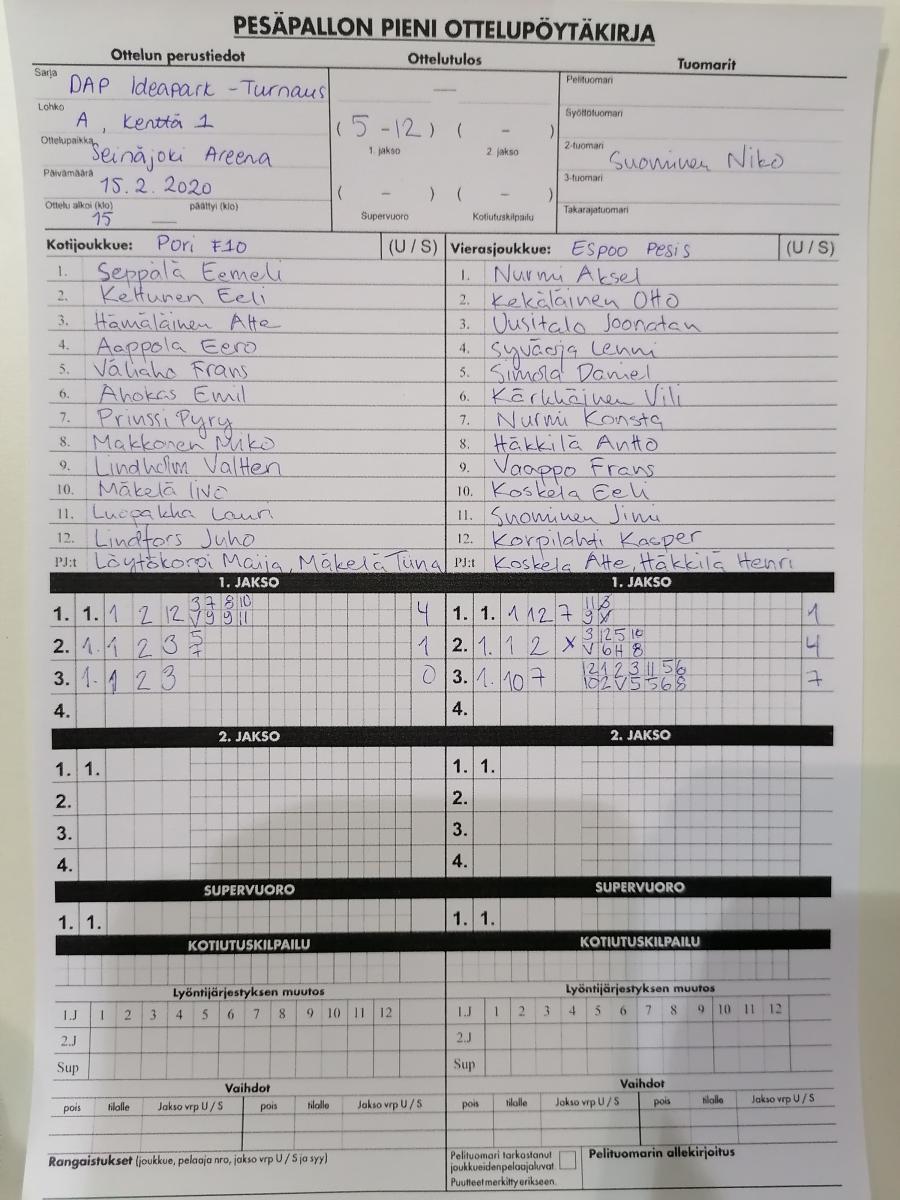 PESÄPALLON PIENI OTTELUPÖYTÄKIRJA
Ottelun perustiedot
Ottelutulos
Tuomarit
Sarja DAP Ideapark - Turnaus
Lohko A, Kenttä 1
Ottelupaikka Seinäjoki Areena
Päivämäärä 15.2.2020
Ottelu alkoi (klo) 15 — päättyi (klo)
—
( 5 - 12 ) ( - )
1. jakso 2. jakso
( - ) ( - )
Supervuoro Kotiutuskilpailu
Pelituomari
Syöttötuomari
2-tuomari Suominen Niko
3-tuomari
Takarajatuomari
Kotijoukkue: Pori F10 (U / S)
1. Seppälä Eemeli
2. Kettunen Eeli
3. Hämäläinen Atte
4. Aappola Eero
5. Väliaho Frans
6. Ahokas Emil
7. Prinssi Pyry
8. Makkonen Miko
9. Lindholm Valtteri
10. Mäkelä Iivo
11. Luopakka Lauri
12. Lindfors Juho
PJ:t Löytökorpi Maija, Mäkelä Tiina
Vierasjoukkue: Espoo Pesis (U / S)
1. Nurmi Aksel
2. Kekäläinen Otto
3. Uusitalo Joonatan
4. Syväoja Lenni
5. Simola Daniel
6. Kärkkäinen Vili
7. Nurmi Konsta
8. Häkkilä Antto
9. Vaappo Frans
10. Koskela Eeli
11. Suominen Jimi
12. Korpilahti Kasper
PJ:t Koskela Atte, Häkkilä Henri
1. JAKSO
1. 1. 1 2 12 3 7 8 10 4
V 9 9 11
2. 1. 1 2 3 5 1
7
3. 1. 1 2 3 0
4.
2. JAKSO
1. 1.
2.
3.
4.
SUPERVUORO
1. 1.
KOTIUTUSKILPAILU
Lyöntijärjestyksen muutos
1.J 1 2 3 4 5 6 7 8 9 10 11 12
2.J
Sup
Vaihdot
pois tilalle Jakso vrp U / S pois tilalle Jakso vrp U / S
1. JAKSO
1. 1. 1 12 7 11 8 1
9
2. 1. 1 2 X 3 12 5 10 4
V 6 H 8
3. 1. 10 7 12 1 2 3 11 5 6 7
10 2 V 5 5 6 8
4.
2. JAKSO
1. 1.
2.
3.
4.
SUPERVUORO
1. 1.
KOTIUTUSKILPAILU
Lyöntijärjestyksen muutos
1.J 1 2 3 4 5 6 7 8 9 10 11 12
2.J
Sup
Vaihdot
pois tilalle Jakso vrp U / S pois tilalle Jakso vrp U / S
Rangaistukset (joukkue, pelaaja nro, jakso vrp U / S ja syy)
Pelituomari tarkastanut
joukkueidenpelaajaluvat.
Puutteet merkitty erikseen.
Pelituomarin allekirjoitus